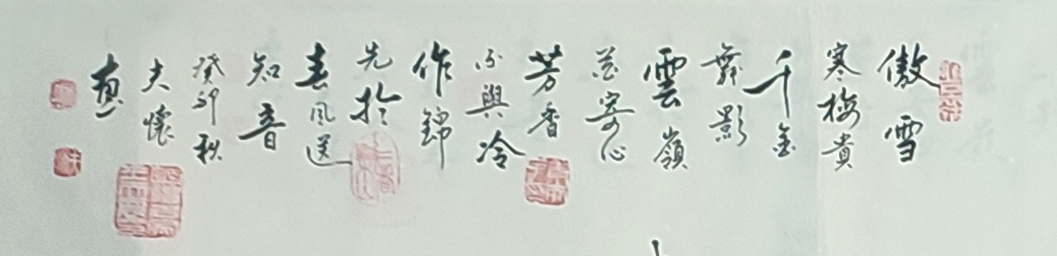 傲雪
寒梅貴
千金
舞影
雲嶺
寄心
芳香
不與冷
作錦
先於
春風送
知音
癸卯秋
懷